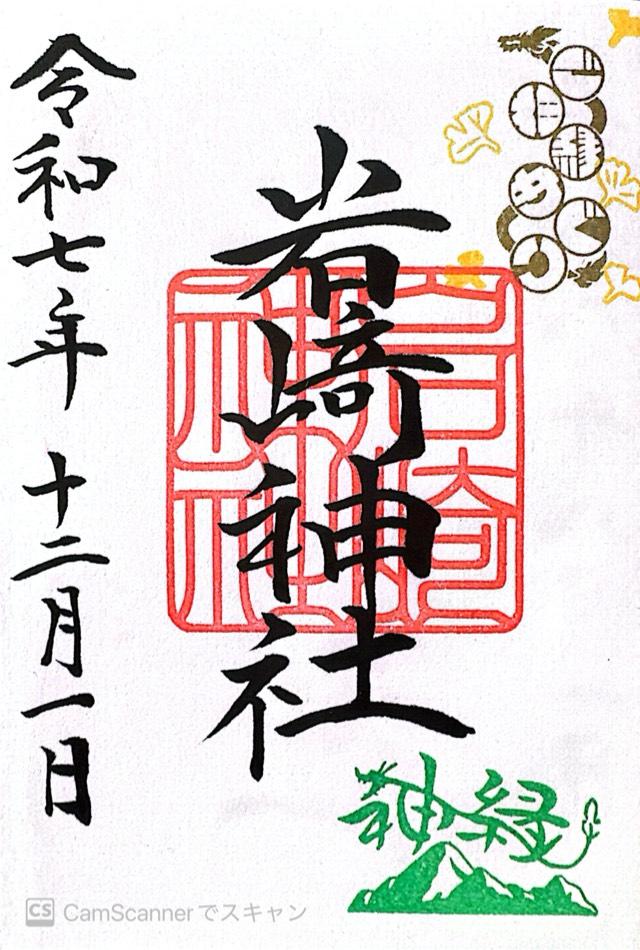 岩崎神社
令和七年 十二月一日
神縁
CS CamScannerでスキャン